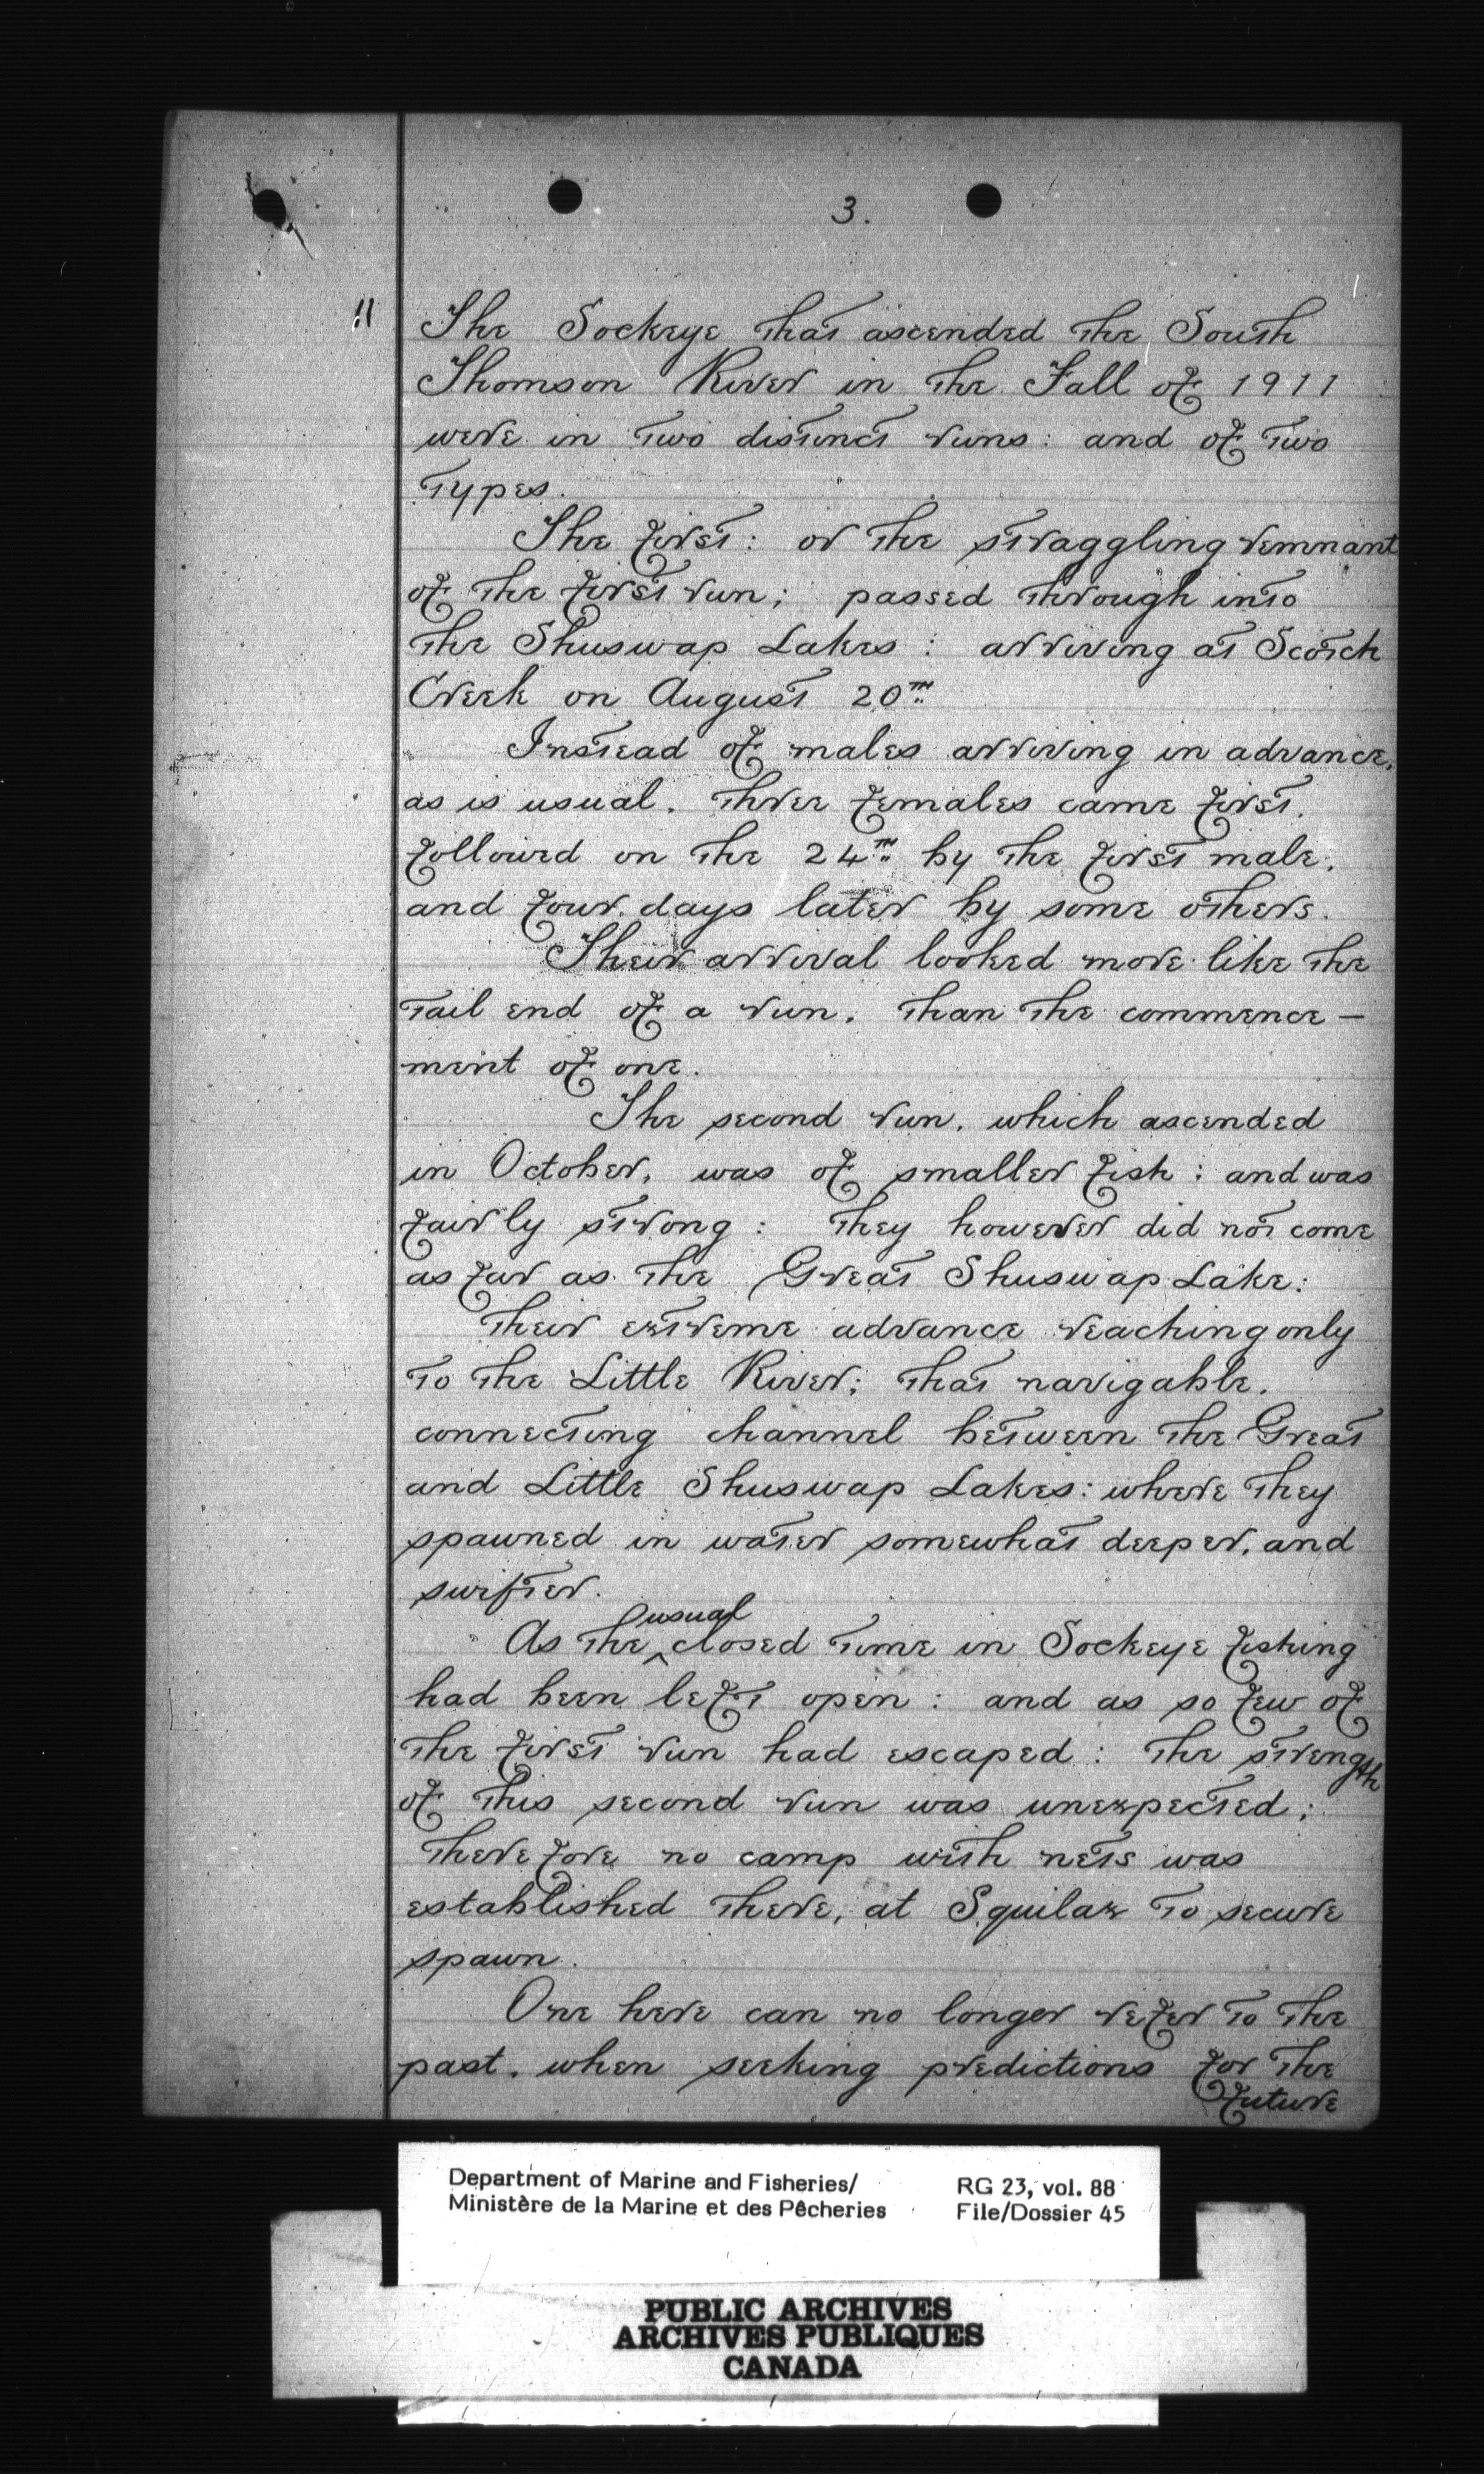 3.
11
The Sockeye that ascended the South
Thomson River in the Fall of 1911
were in two distinct runs: and of two
types.
The first: or the straggling remnant
of the first run; passed through into
the Shuswap Lakes: arriving at Scotch
Creek on August 20th
Instead of males arriving in advance,
as is usual. three females came first,
followed on the 24th by the first male,
and four days later by some others.
Their arrival looked more like the
tail end of a run, than the commence-
ment of one.
The second run, which ascended
in October, was of smaller fish: and was
fairly strong: they however did not come
as far as the Great Shuswap Lake:
their extreme advance reaching only
to the Little River; that navigable,
connecting channel between the Great
and Little Shuswap Lakes: where they
spawned in water somewhat deeper, and
swifter.
As the usual closed time in Sockeye fishing
had been left open: and as so few of
the first run had escaped: the strength
of this second run was unexpected;
therefore no camp with nets was
established there, at Squilax to secure
spawn.
One here can no longer refer to the
past, when seeking predictions for the
future
Department of Marine and Fisheries/ RG 23, vol. 88
Ministère de la Marine et des Pêcheries File/Dossier 45
PUBLIC ARCHIVES
ARCHIVES PUBLIQUES
CANADA